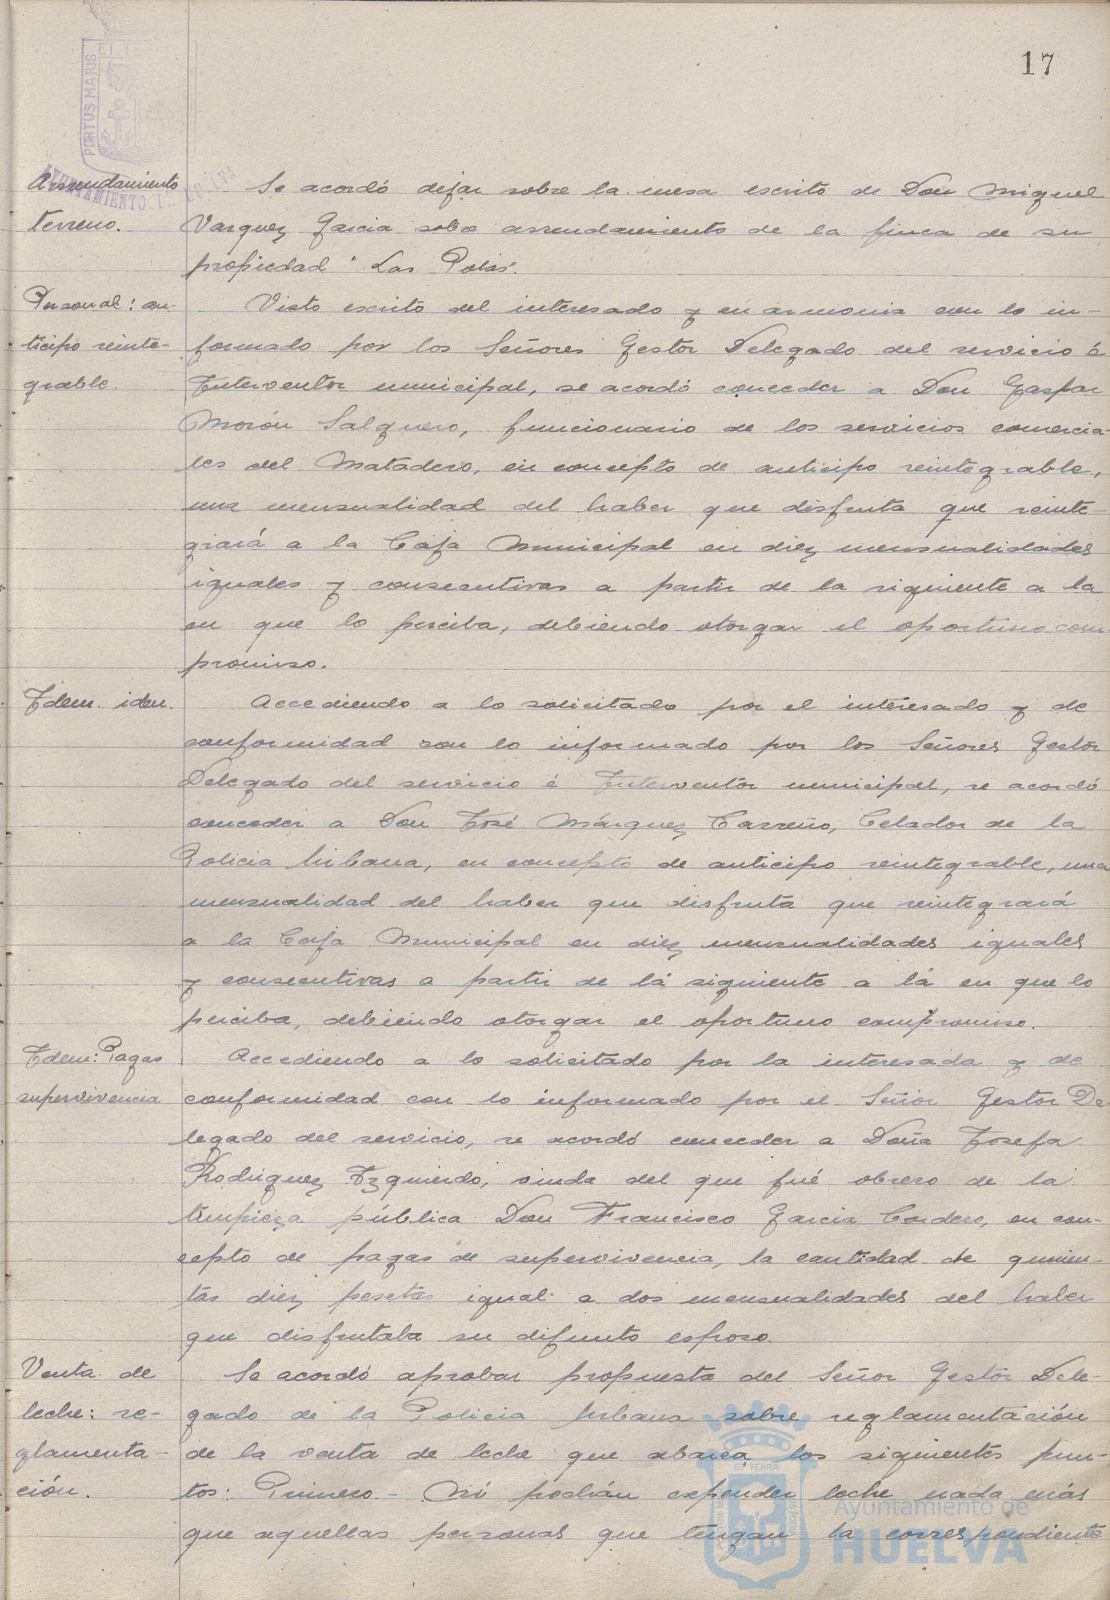 17
PORTUS MARIS
AYUNTAMIENTO DE HUELVA
Arrendamiento
terreno.
Se acordó dejar sobre la mesa escrito de Don Miguel
Vazquez Garcia sobre arrendamiento de la finca de su
propiedad "Las
Personal: an-
ticipo reinte-
grable.
Visto escrito del interesado y en armonia con lo in-
formado por los Señores Gestor Delegado del servicio é
Interventor municipal, se acordó conceder a Don Gaspar
Morón Salguero, funcionario de los servicios comercia-
les del Matadero, en concepto de anticipo reintegrable,
una mensualidad del haber que disfruta que reinte-
grará a la Caja Municipal en diez mensualidades
iguales y consecutivas a partir de la siguiente a la
en que lo perciba, debiendo otorgar el oportuno com
promiso.
Idem. idem.
Accediendo a lo solicitado por el interesado y de
conformidad con lo informado por los Señores Gestor
Delegado del servicio é Interventor municipal, se acordó
conceder a Don José Márquez Carreño, Celador de la
Policia Urbana, en concepto de anticipo reintegrable, una
mensualidad del haber que disfruta que reintegrará
a la Caja Municipal en diez mensualidades iguales
y consecutivas a partir de la siguiente a la en que lo
perciba, debiendo otorgar el oportuno compromiso.
Idem: Pagas
supervivencia
Accediendo a lo solicitado por la interesada y de
conformidad con lo informado por el Señor Gestor De-
legado del servicio, se acordó conceder a Doña Josefa
Rodriguez Izquierdo, viuda del que fué obrero de la
limpieza pública Don Francisco Garcia Cordero, en con-
cepto de pagas de supervivencia, la cantidad de quinien-
tas diez pesetas igual a dos mensualidades del haber
que disfrutaba su difunto esposo.
Venta de
leche: re-
glamenta-
ción.
Se acordó aprobar propuesta del Señor Gestor Dele-
gado de la Policia Urbana sobre reglamentación
de la venta de leche que abarca los siguientes pun-
tos: Primero.- No podrán expender leche nada más
que aquellas personas que tengan la correspondiente
Ayuntamiento de
HUELVA